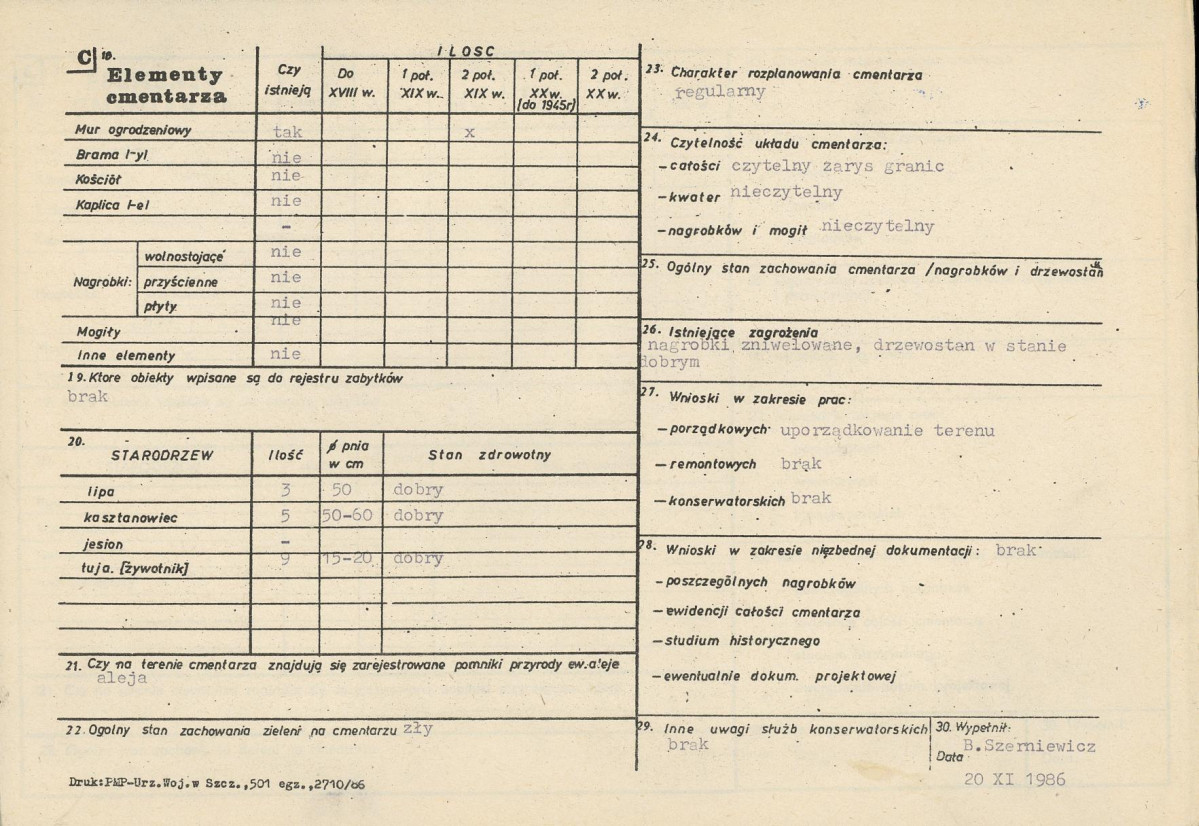 C 18.
Elementy cmentarza
Czy istnieją
ILOSC
Do XVIII w.
1 poł. XIX w.
2 poł. XIX w.
1 poł. XX w. [do 1945r]
2 poł. XX w.
Mur ogrodzeniowy tak x
Brama [-y] nie
Kościół nie
Kaplica [-e] nie
-
Nagrobki:
wolnostojące nie
przyścienne nie
płyty nie
Mogiły nie
Inne elementy nie
19. Ktore obiekty wpisane są do rejestru zabytków
brak
20.
STARODRZEW Ilość ø pnia w cm Stan zdrowotny
lipa 3 50 dobry
kasztanowiec 5 50-60 dobry
jesion -
tuja. [żywotnik] 9 15-20 dobry
21. Czy na terenie cmentarza znajdują się zarejestrowane pomniki przyrody ew.aleje
aleja
22. Ogolny stan zachowania zieleni na cmentarzu zły
Druk:PMP-Urz.Woj.w Szcz.,501 egz.,2710/86
23. Charakter rozplanowania cmentarza
regularny
24. Czytelność układu cmentarza:
- całości czytelny zarys granic
- kwater nieczytelny
- nagrobków i mogił nieczytelny
25. Ogólny stan zachowania cmentarza /nagrobków i drzewostan
26. Istniejące zagrożenia
nagrobki zniwelowane, drzewostan w stanie
dobrym
27. Wnioski w zakresie prac:
- porządkowych uporządkowanie terenu
- remontowych brak
- konserwatorskich brak
28. Wnioski w zakresie niezbednej dokumentacji: brak
- poszczególnych nagrobków
- ewidencji całości cmentarza
- studium historycznego
- ewentualnie dokum. projektowej
29. Inne uwagi służb konserwatorskich
brak
30. Wypełnił:
B.Szerniewicz
Data
20 XI 1986